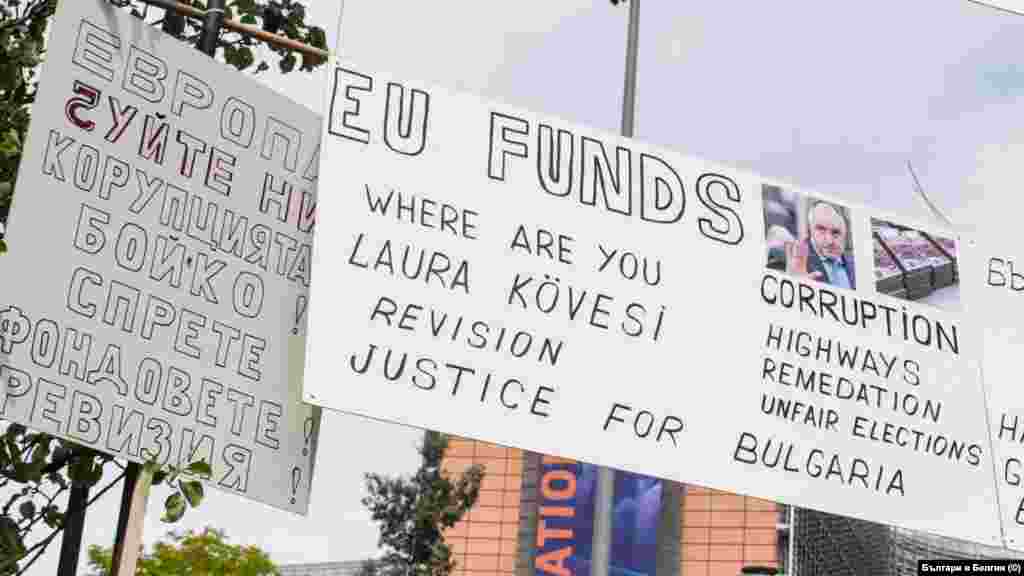 ЕВРОПА
ЧУЙТЕ НИ
КОРУПЦИЯТА
БОЙКО !
СПРЕТЕ
ФОНДОВЕТЕ !
РЕВИЗИЯ !
EU FUNDS
WHERE ARE YOU
LAURA KÖVESI
REVISION
JUSTICE FOR BULGARIA
CORRUPTION
HIGHWAYS
REMEDATION
UNFAIR ELECTIONS
БЪ
НА
ATION
Българи в Белгия (©)